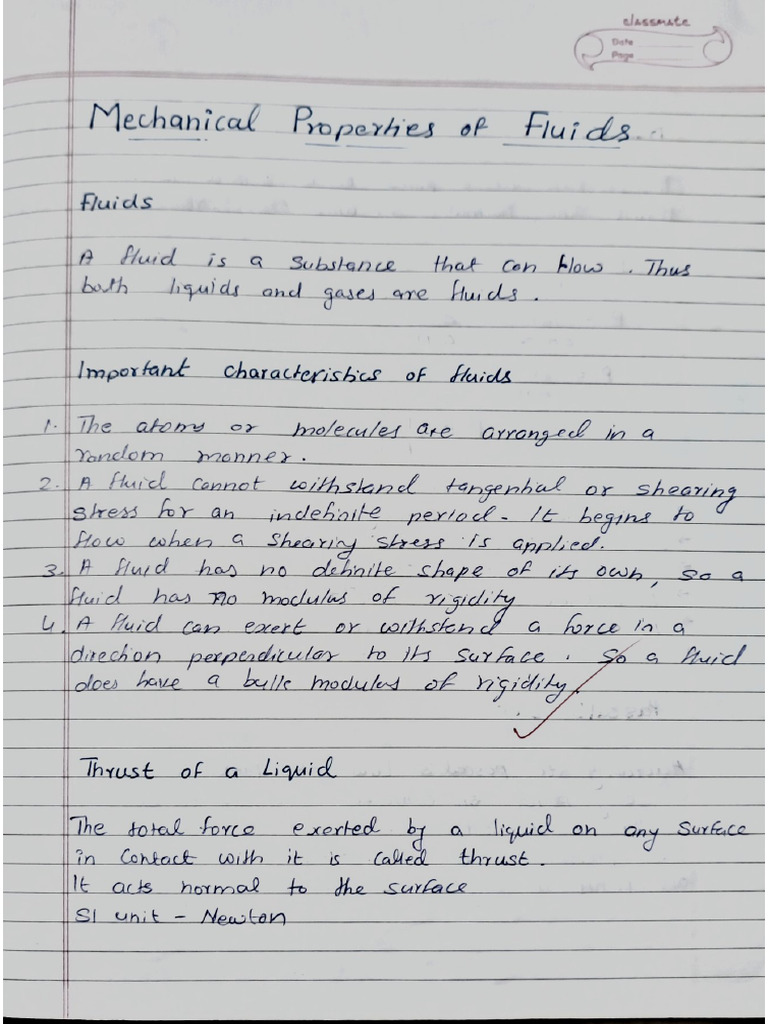 classmate
Date
Page
Mechanical Properties of Fluids
Fluids
A fluid is a substance that can flow. Thus
both liquids and gases are fluids.
Important characteristics of fluids
1. The atoms or molecules are arranged in a
random manner.
2. A fluid cannot withstand tangential or shearing
stress for an indefinite period. It begins to
flow when a shearing stress is applied.
3. A fluid has no definite shape of its own, so a
fluid has no modulus of rigidity
4. A fluid can exert or withstand a force in a
direction perpendicular to its surface. So a fluid
does have a bulk modulus of rigidity.
Thrust of a Liquid
The total force exerted by a liquid on any surface
in contact with it is called thrust.
It acts normal to the surface
SI unit - Newton